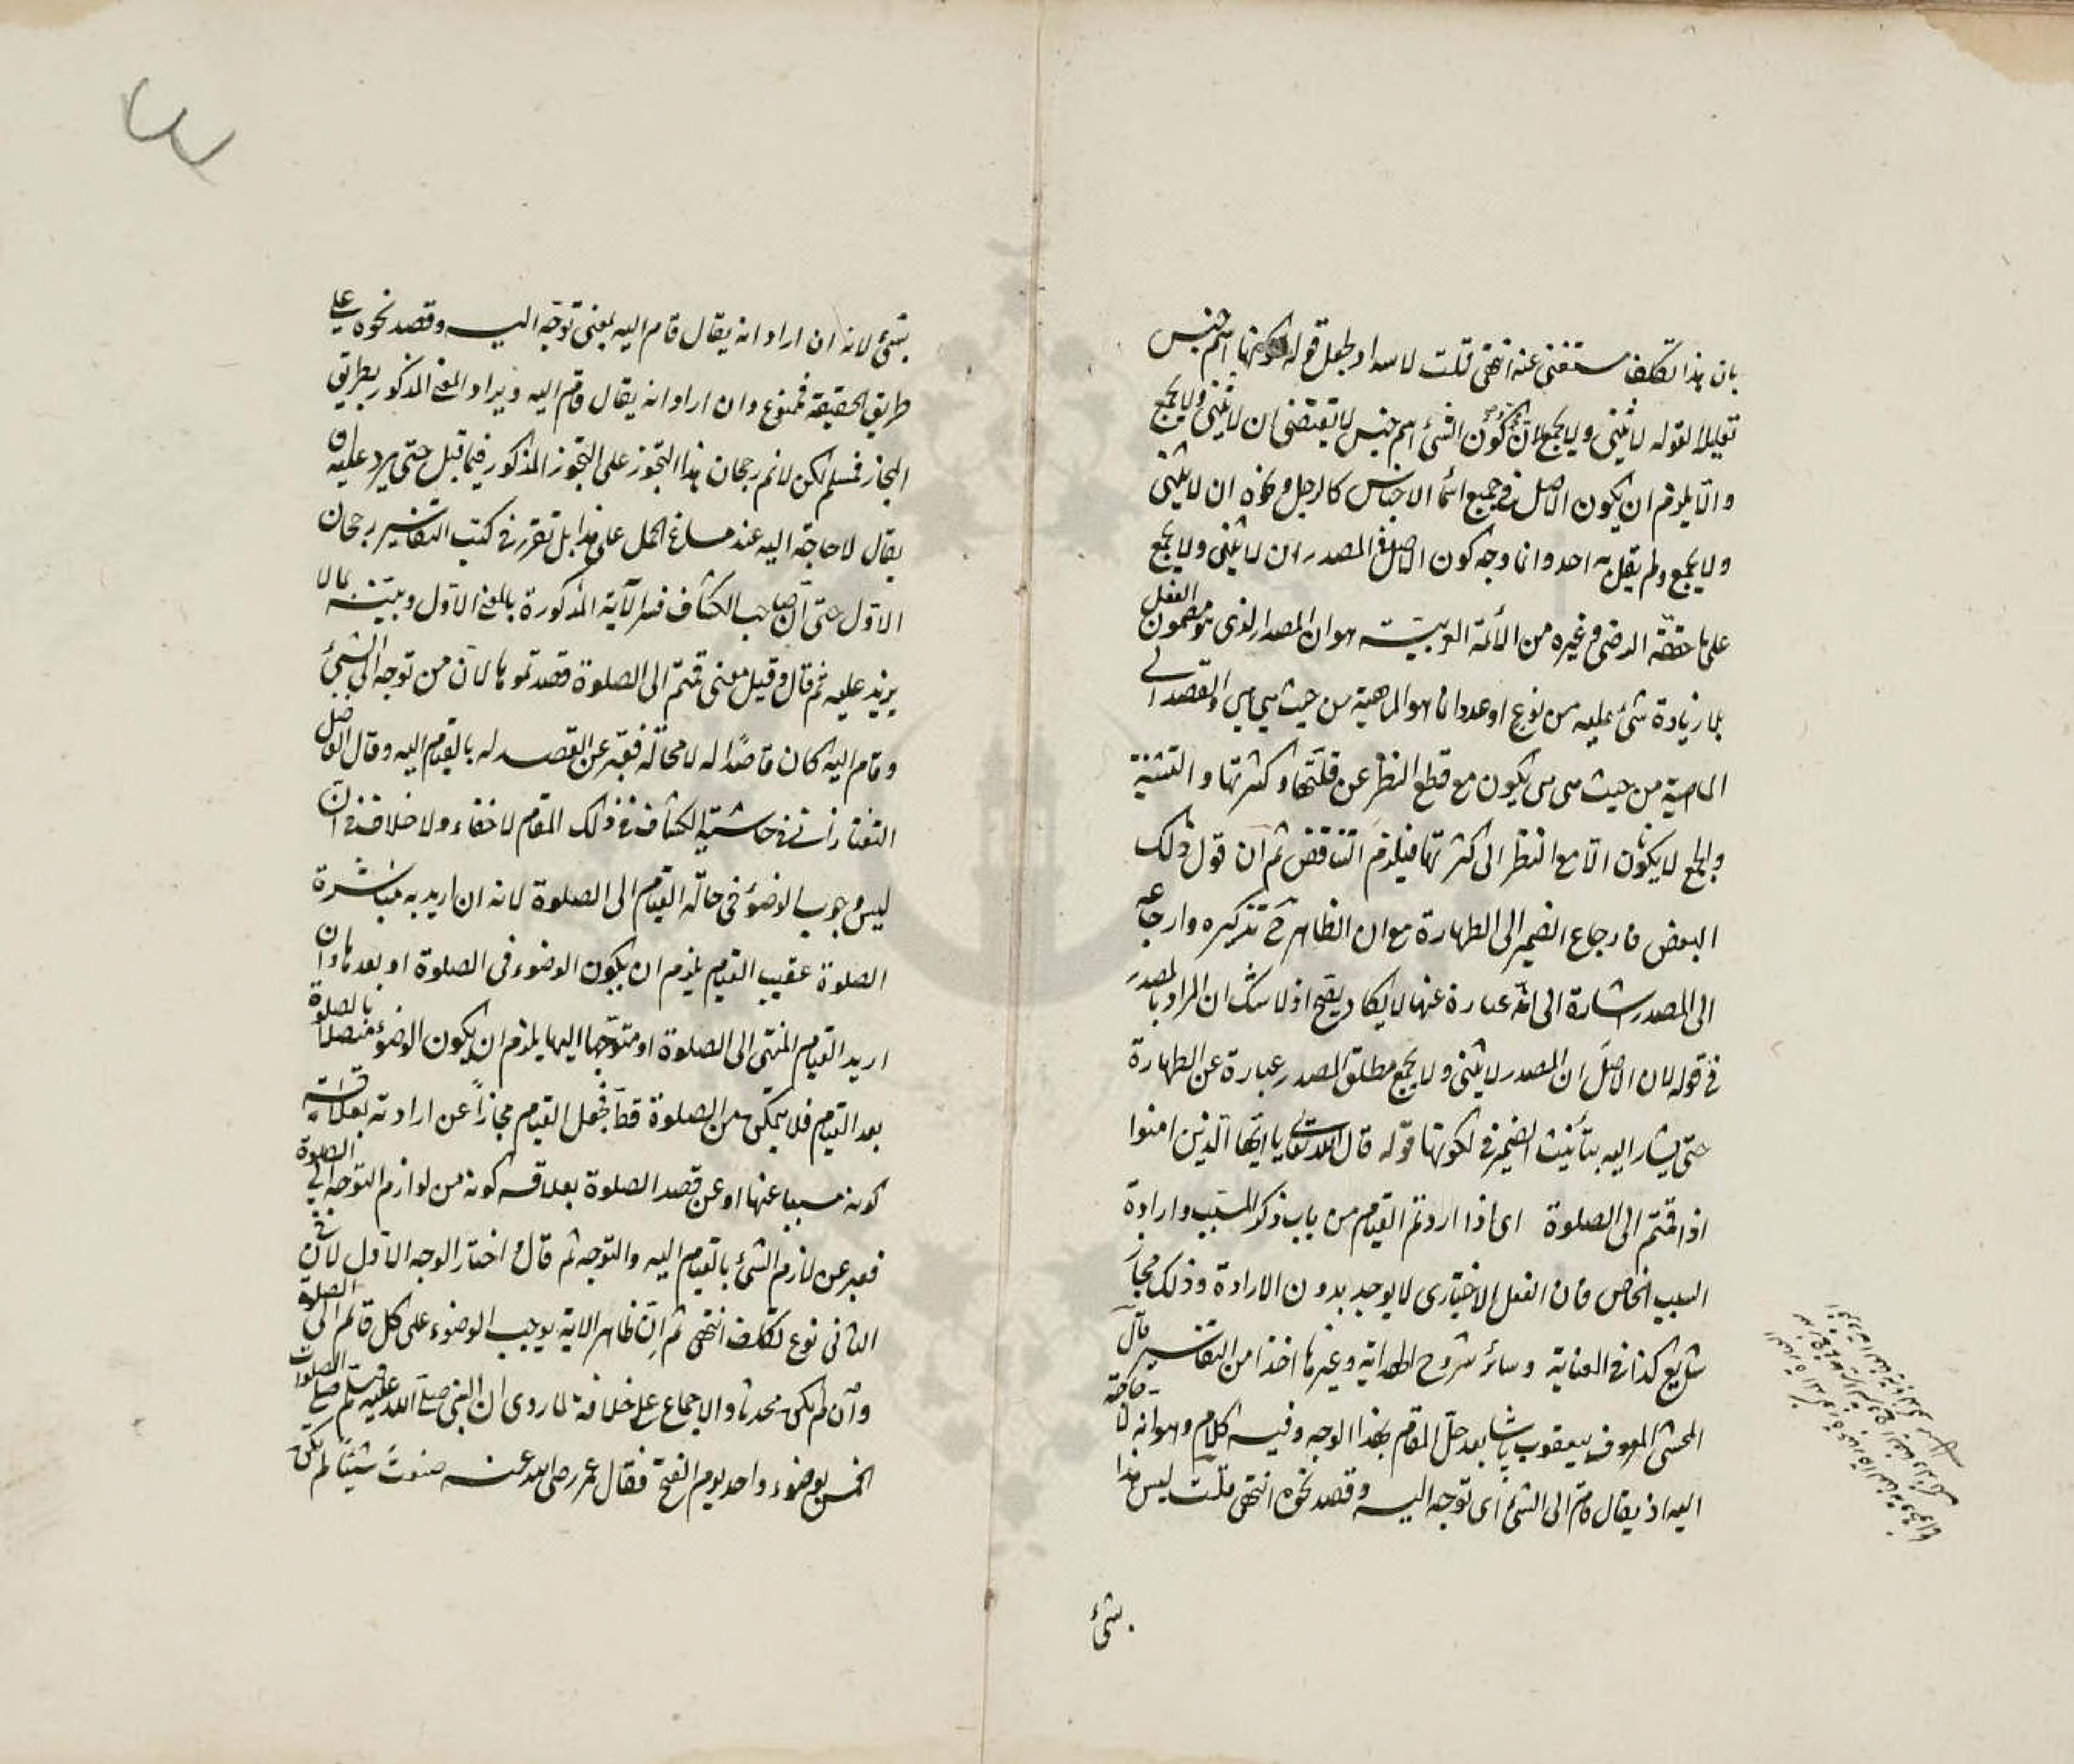 بان هذا تكلف مستغنى عنه انتهى قلت لا سداد لجعل قوله لكونها اسم جنس
تعليلا لقوله لا يثنى ولا يجمع لان كون الشئ اسم جنس لا يقتضى ان لا يثنى ولا يجمع
والا يلزم ان يكون الاصل فى جميع اسماء الاجناس كالرجل ونحوه ان لا يثنى
ولا يجمع ولم يقل به احد وانما وجه كون الاصل فى المصدر ان لا يثنى ولا يجمع
على ما حققه الرضى وغيره من الائمة العربية هو ان المصدر الذى هو مضمون الفعل
بلا زيادة شئ عليه من نوع او عدد انما هو الماهية من حيث هى هى والقصد الى
الماهية من حيث هى هى يكون مع قطع النظر عن قلتها وكثرتها والتثنية
والجمع لا يكونان الا مع النظر الى كثرتها فيلزم التناقض ثم ان قول ذلك
البعض فارجاع الضمير الى الطهارة مع ان الظاهر ح تذكيره وارجاعه
الى المصدر اشارة الى انه عبارة عنها لا يكاد يصح اذ لا شك ان المراد بالمصدر
فى قوله لان الاصل ان المصدر لا يثنى ولا يجمع مطلق المصدر عبارة عن الطهارة
حتى يشار اليه بتأنيث الضمير فى لكونها قوله قال الله تعالى يا ايها الذين امنوا
اذا قمتم الى الصلوة اى اذا اردتم القيام من باب ذكر المسبب وارادة
السبب الخاص فان الفعل الاختيارى لا يوجد بدون الارادة وذلك مجاز
شايع كذا فى العناية وسائر شروح الهداية وغيرها اخذا من التفاسير قال
المحشى المعروف بيعقوب پاشا بعد حل المقام بهذا الوجه وفيه كلام وهو انه لا حاجة
اليه اذ يقال قام الى الشئ اى توجه اليه وقصد نحوه انتهى قلت ليس هذا
بشئ
بشئ لانه ان اراد انه يقال قام اليه بمعنى توجه اليه وقصد نحوه على
طريق الحقيقة فممنوع وان اراد انه يقال قام اليه ويراد المعنى المذكور بطريق
المجاز فمسلم لكن لانم رجحان هذا التجوز على التجوز المذكور فيما قبل حتى يرد عليه ان
يقال لا حاجة اليه عند مساغ الحمل على هذا بل تقرر فى كتب التفاسير رجحان
الاول حتى ان صاحب الكشاف فسر الآية المذكورة بالمعنى الاول وبينه بما لا
يزيد عليه ثم قال وقيل معنى قمتم الى الصلوة قصدتموها لان من توجه الى الشئ
وقام اليه كان قاصدا له لا محالة فعبر عن القصد له بالقيام اليه وقال الفاضل
التفتازانى فى حاشية الكشاف فى ذلك المقام لا خفاء ولا خلاف فى ان
ليس وجوب الوضؤ فى حالة القيام الى الصلوة لانه ان اريد به مباشرة
الصلوة عقيب القيام يلزم ان يكون الوضوء فى الصلوة او بعدها وان
اريد القيام المنتهى الى الصلوة او متوجها اليها يلزم ان يكون الوضوء متصلا بالصلوة
بعد القيام فلا يتمكن من الصلوة قط فجعل القيام مجازا عن ارادته بعلاقة
كونه مسببا عنها او عن قصد الصلوة بعلاقة كونه من لوازم التوجه الى الصلوة
فعبر عن لازم الشئ بالقيام اليه والتوجه ثم قال واختار الوجه الاول لان فى
الثانى نوع تكلف انتهى ثم ان ظاهر الاية يوجب الوضوء على كل قائم الى الصلوة
وان لم يكن محدثا والاجماع على خلافه لما روى ان النبى صلى الله عليه وسلم صلى الصلوات
الخمس بوضوء واحد يوم الفتح فقال عمر رضى الله عنه صنعت شيئا لم تكن